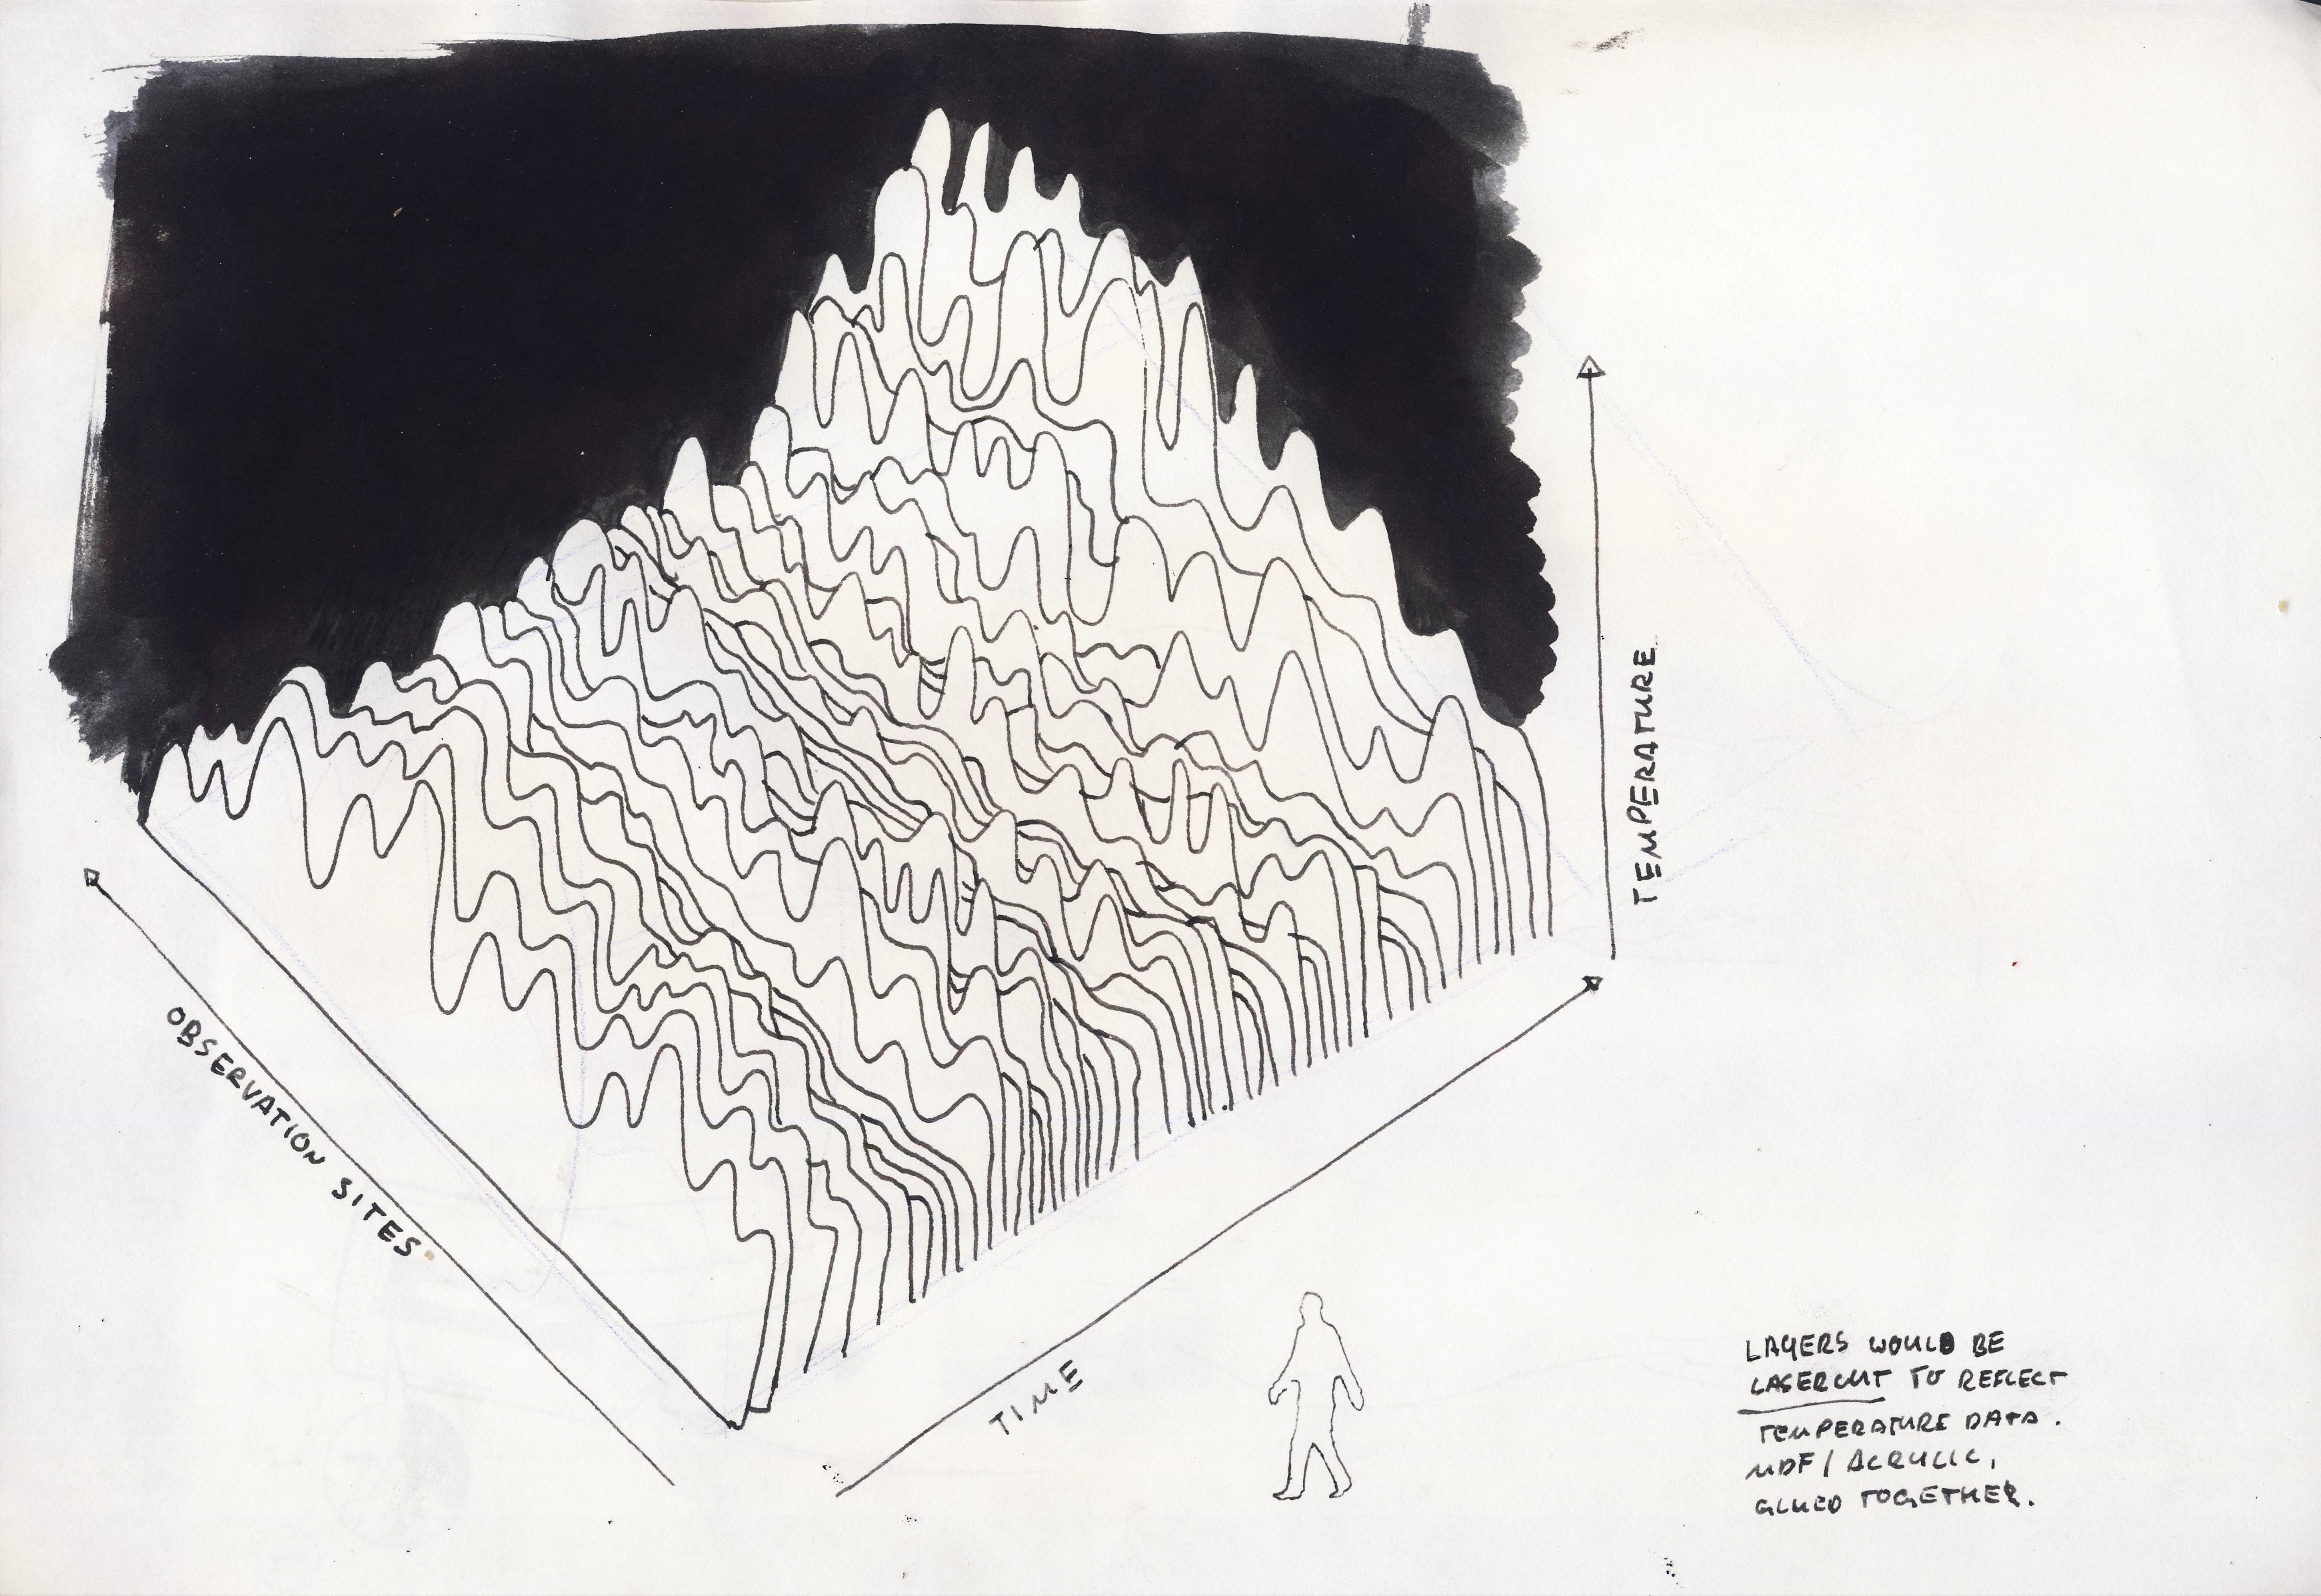 TEMPERATURE
OBSERVATION SITES
TIME
LAYERS WOULD BE
LASERCUT TO REFLECT
TEMPERATURE DATA.
MDF / ACRYLIC,
GLUED TOGETHER.